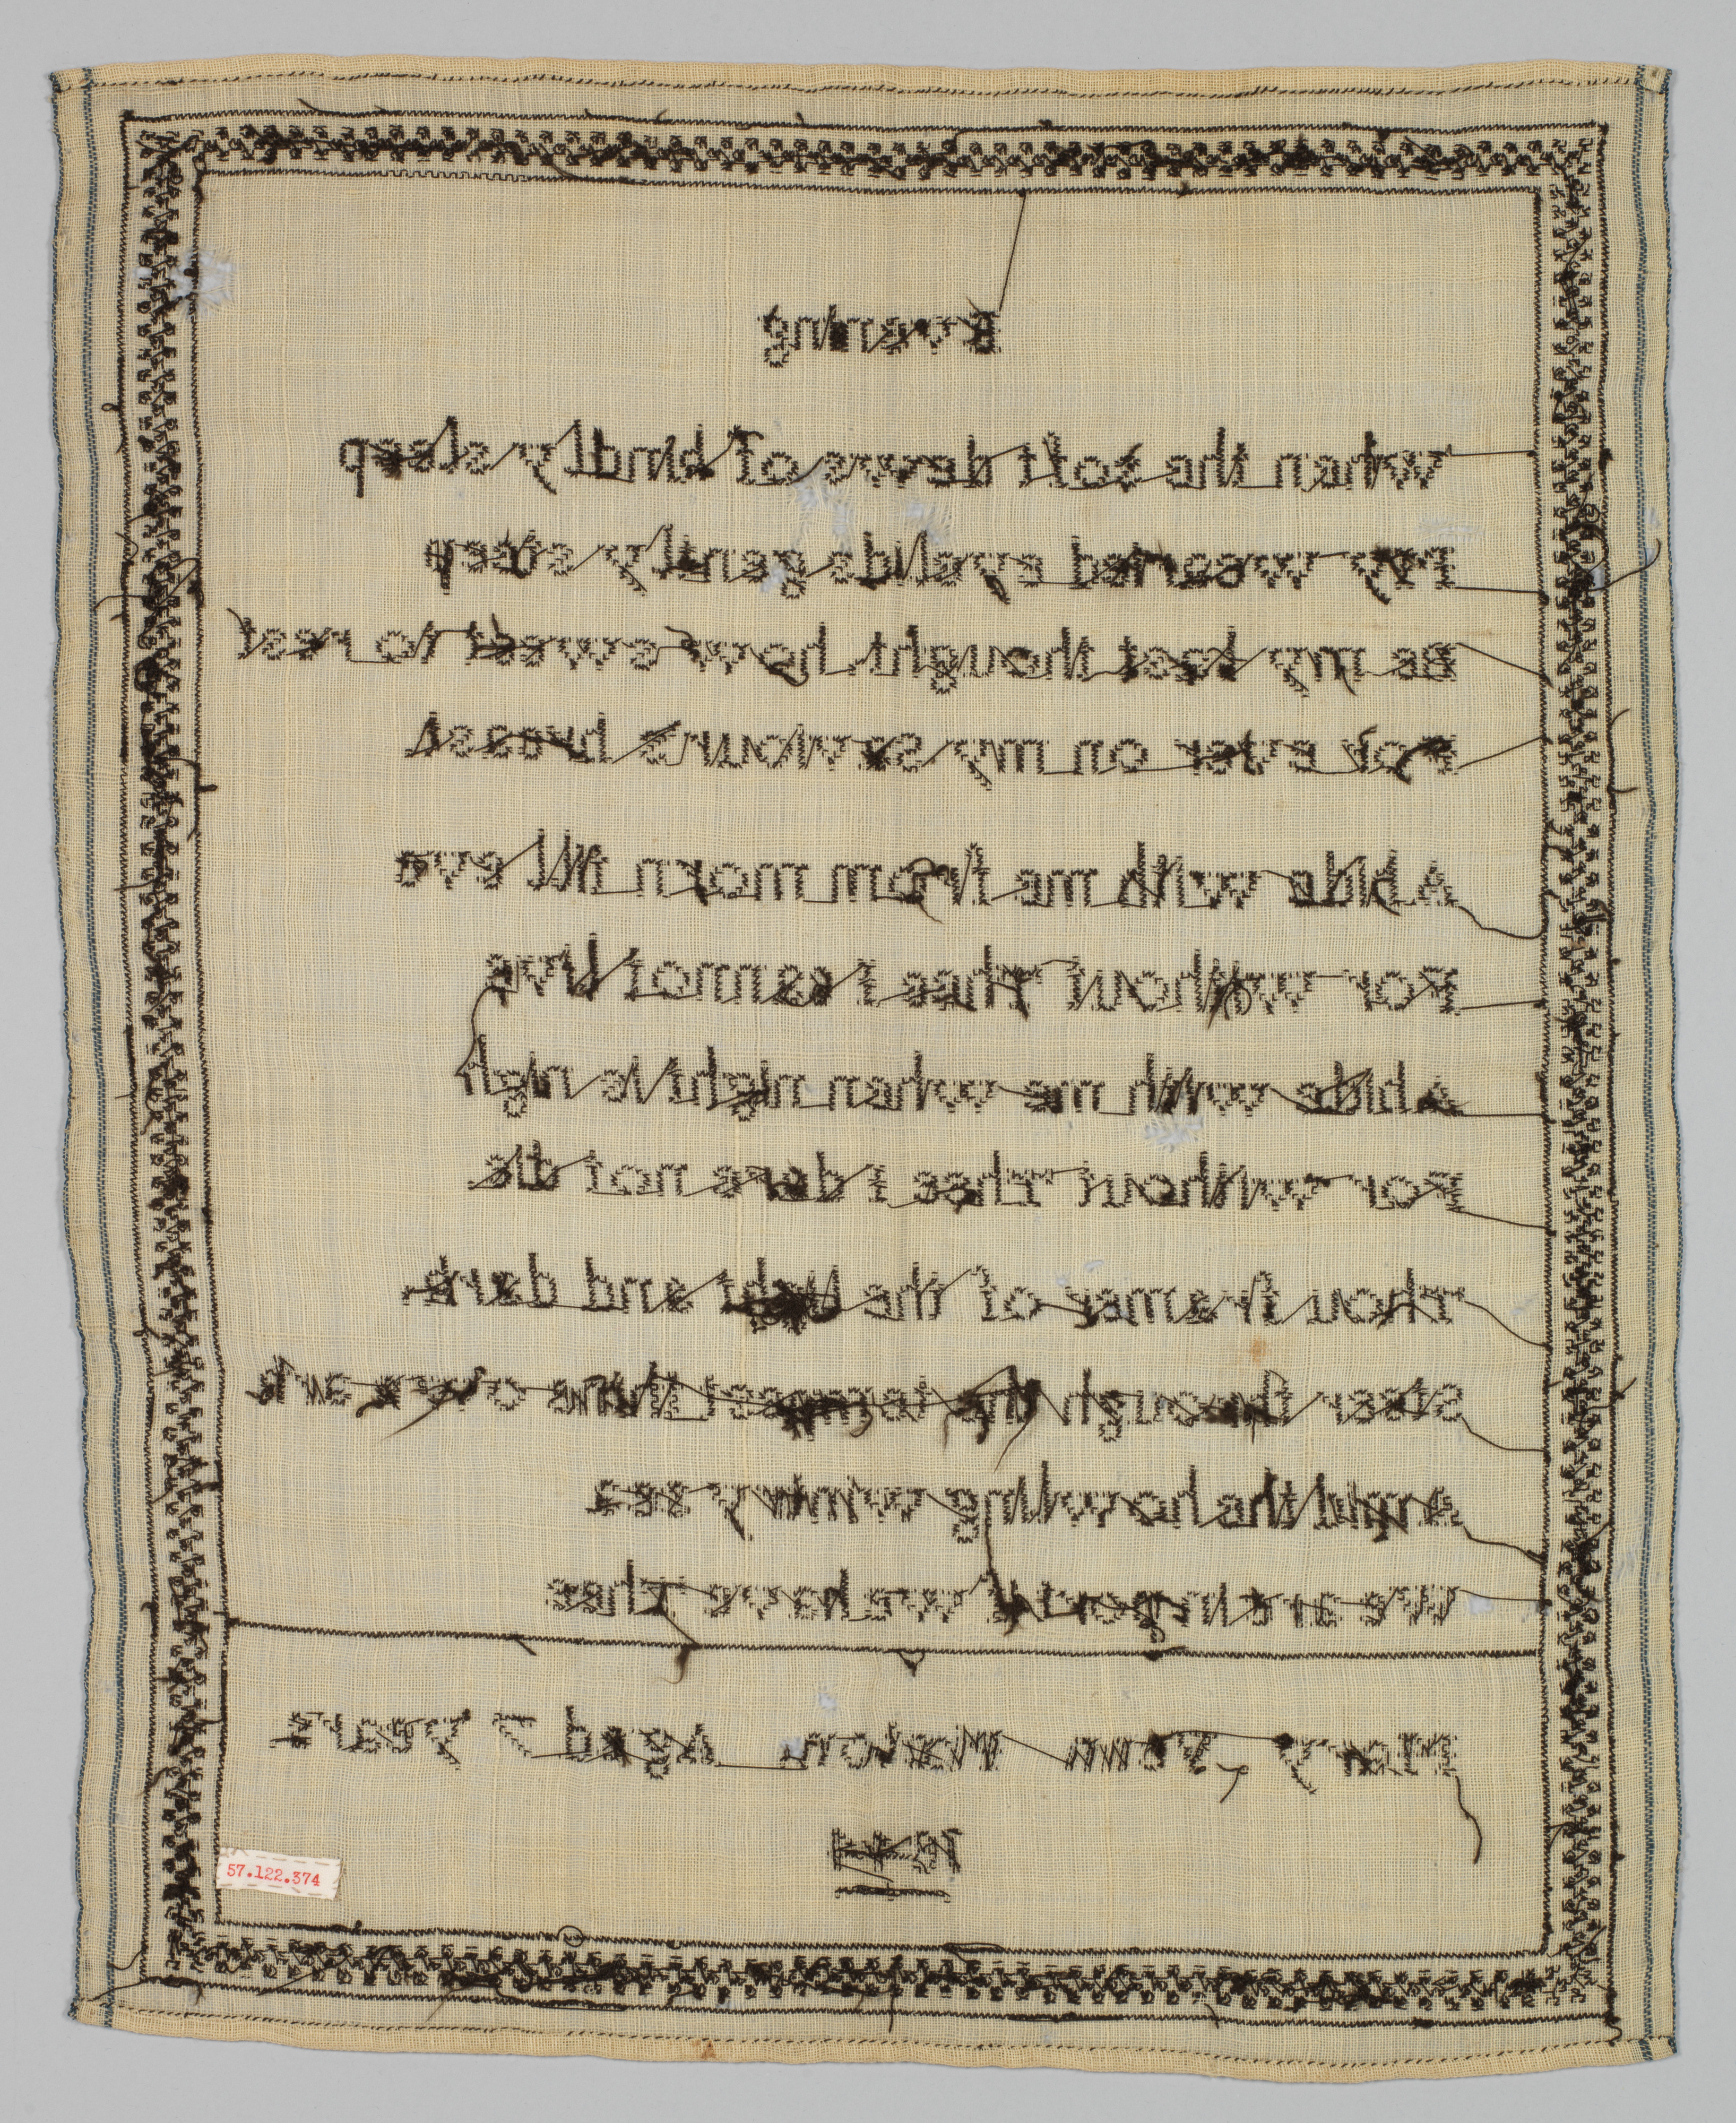 Evening
when the soft dews of kindly sleep
My wearied eyelids gently steep
Be my last thought how sweet to rest
For ever on my Saviours breast
Abide with me from morn till eve
For without Thee I cannot live
Abide with me when night is nigh
For without Thee I dare not die
Thou framer of the light and dark
Steer through the tempest thine own ark
Amid the howling wintry sea
we are in port if we have Thee
Mary Aged 7 years
57.122.374